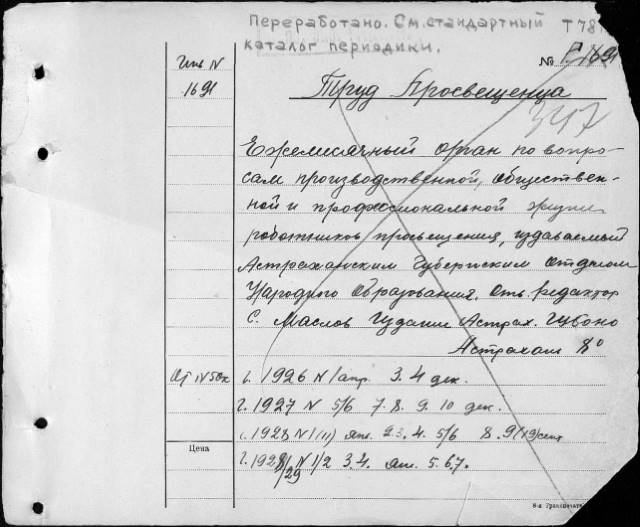 Переработано. См. стандартный Т 78
каталог периодики.
Инв IV
1691
№ Г. 1691
Труд Просвещенца
347
Ежемисячный орган по вопро-
сам производственной, обществен-
ной и профессиональной жизни
работников просвещения, издаваемый
Астраханским Губернским отделом
Народного образования. Отв. редактор
С. Маслов Издание Астрах. Губоно
Астрахань 8°
IV 50к
г. 1926 N 1 апр. 3. 4 дек.
г. 1927 N 5/6 7. 8. 9. 10 дек.
г. 1928 N 1 (11) янв. 23. 4. 5/6 8. 9 (19) сент
Цена
г. 1928/29 N 1/2 3.4. янв. 5. 6. 7.